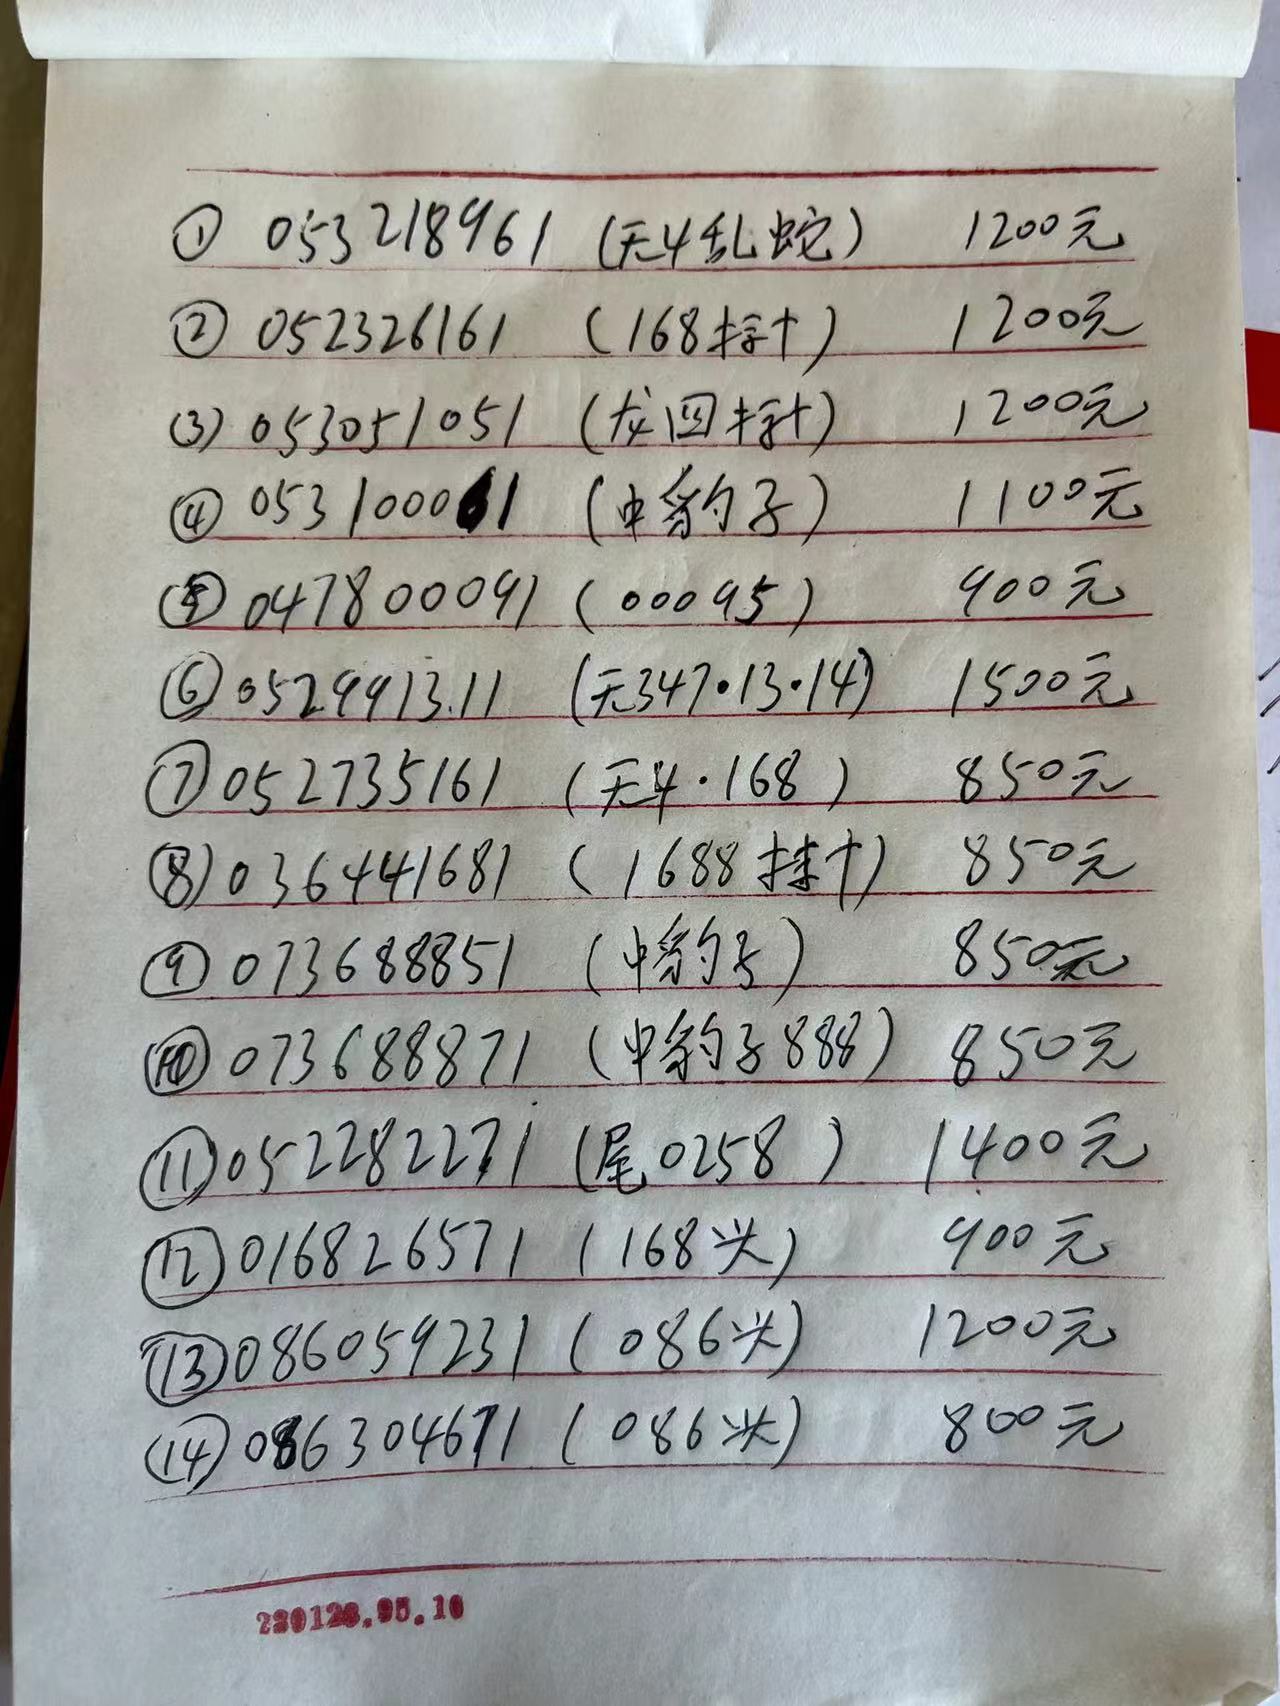 ① 053218961 (无4乱蛇) 1200元
② 052326161 (168挂十) 1200元
③ 053051051 (龙四挂十) 1200元
④ 053100061 (中豹子) 1100元
⑤ 047800091 (00095) 900元
⑥ 0529913.11 (无347·13·14) 1500元
⑦ 052735161 (无4·168) 850元
⑧ 036441681 (1688挂十) 850元
⑨ 073688851 (中豹子) 850元
⑩ 073688871 (中豹子888) 850元
⑪ 052282271 (尾0258) 1400元
⑫ 016826571 (168头) 900元
⑬ 086059231 (086头) 1200元
⑭ 086304671 (086头) 800元
220128.95.10